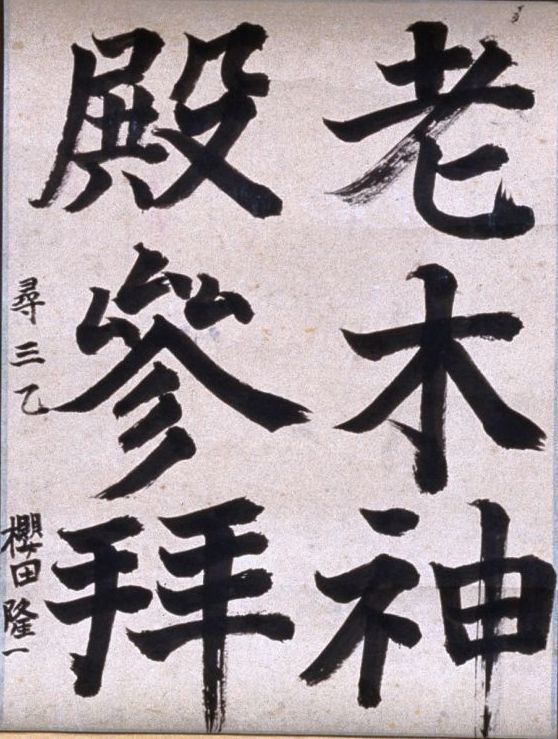 老木神
殿參拜
尋三乙
櫻田隆一